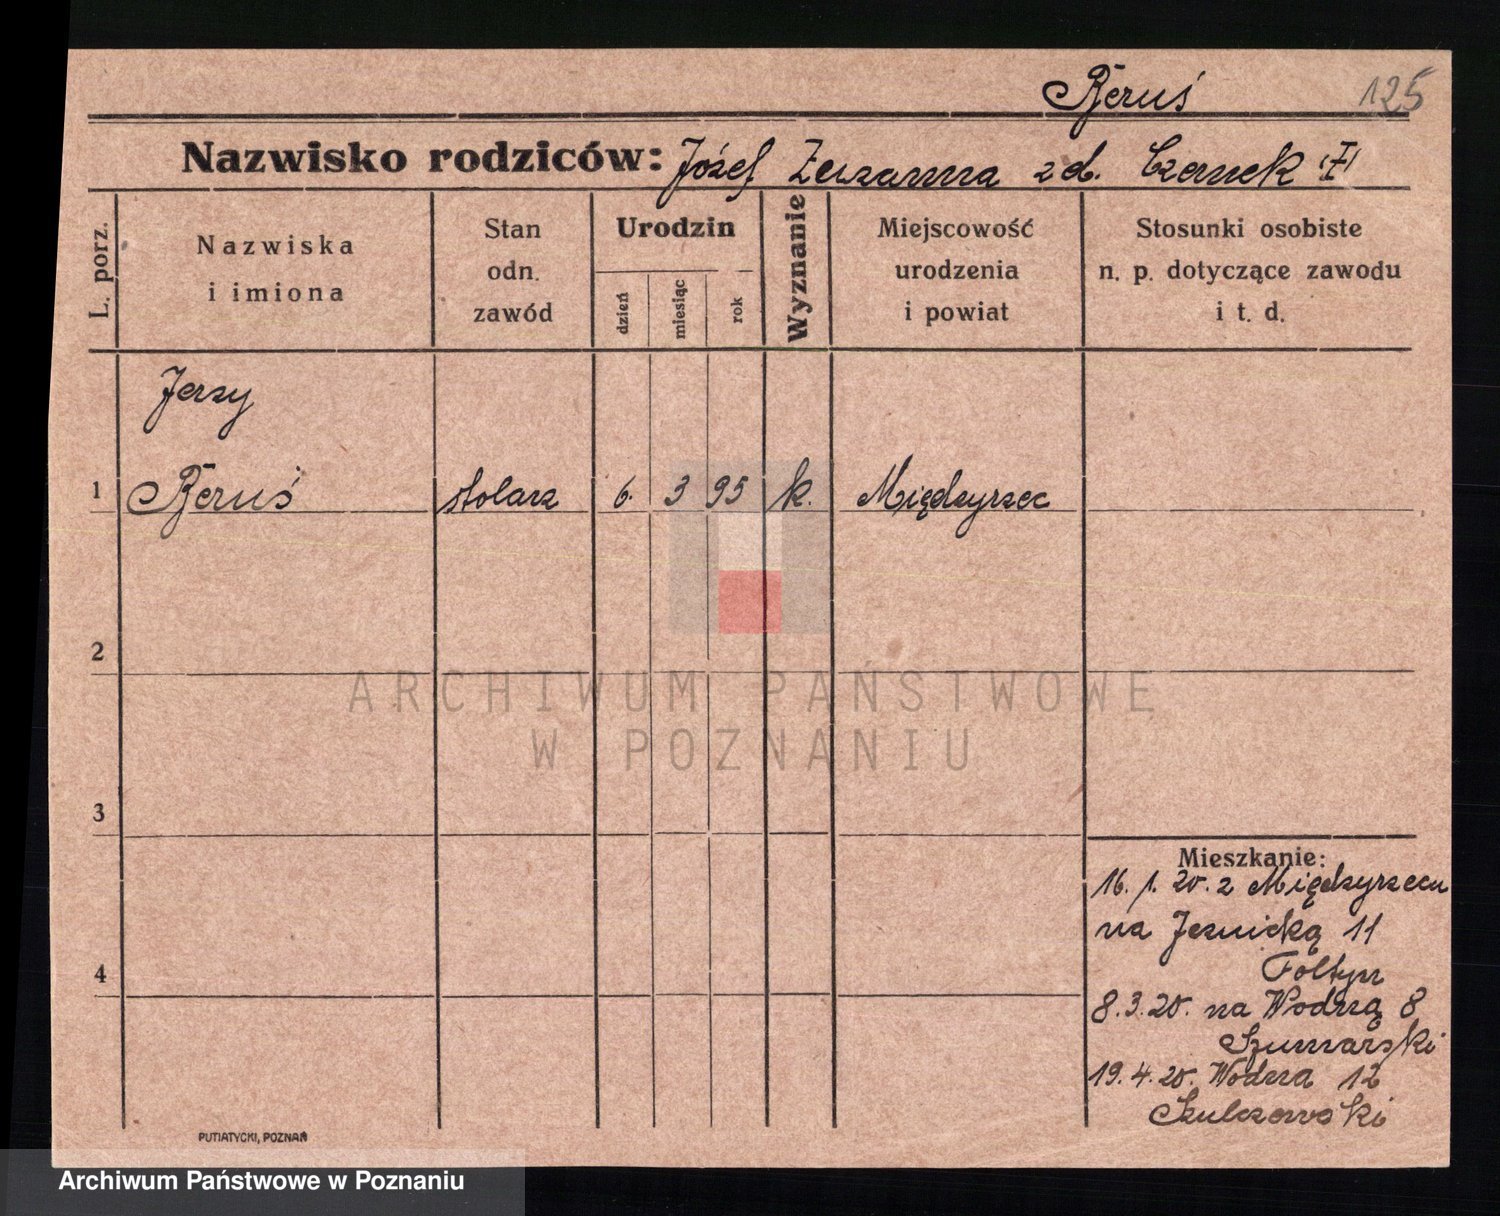 Beruś 125
Nazwisko rodziców: Józef Zuzanna z d. Czernek
L. porz.
Nazwiska
i imiona
Stan
odn.
zawód
Urodzin
dzień
miesiąc
rok
Wyznanie
Miejscowość
urodzenia
i powiat
Stosunki osobiste
n. p. dotyczące zawodu
i t. d.
Jerzy
1 Beruś stolarz 6. 3 95 k. Międzyrzec
2
ARCHIWUM PAŃSTWOWE
W POZNANIU
3
Mieszkanie:
16. 1. 20. z Międzyrzecu
na Jeznicką 11
Foltyn
4
8. 3. 20. na Wodną 8
Szumarski
19. 4. 20. Wodna 12
Szulczewski
PUTIATYCKI, POZNAŃ
Archiwum Państwowe w Poznaniu